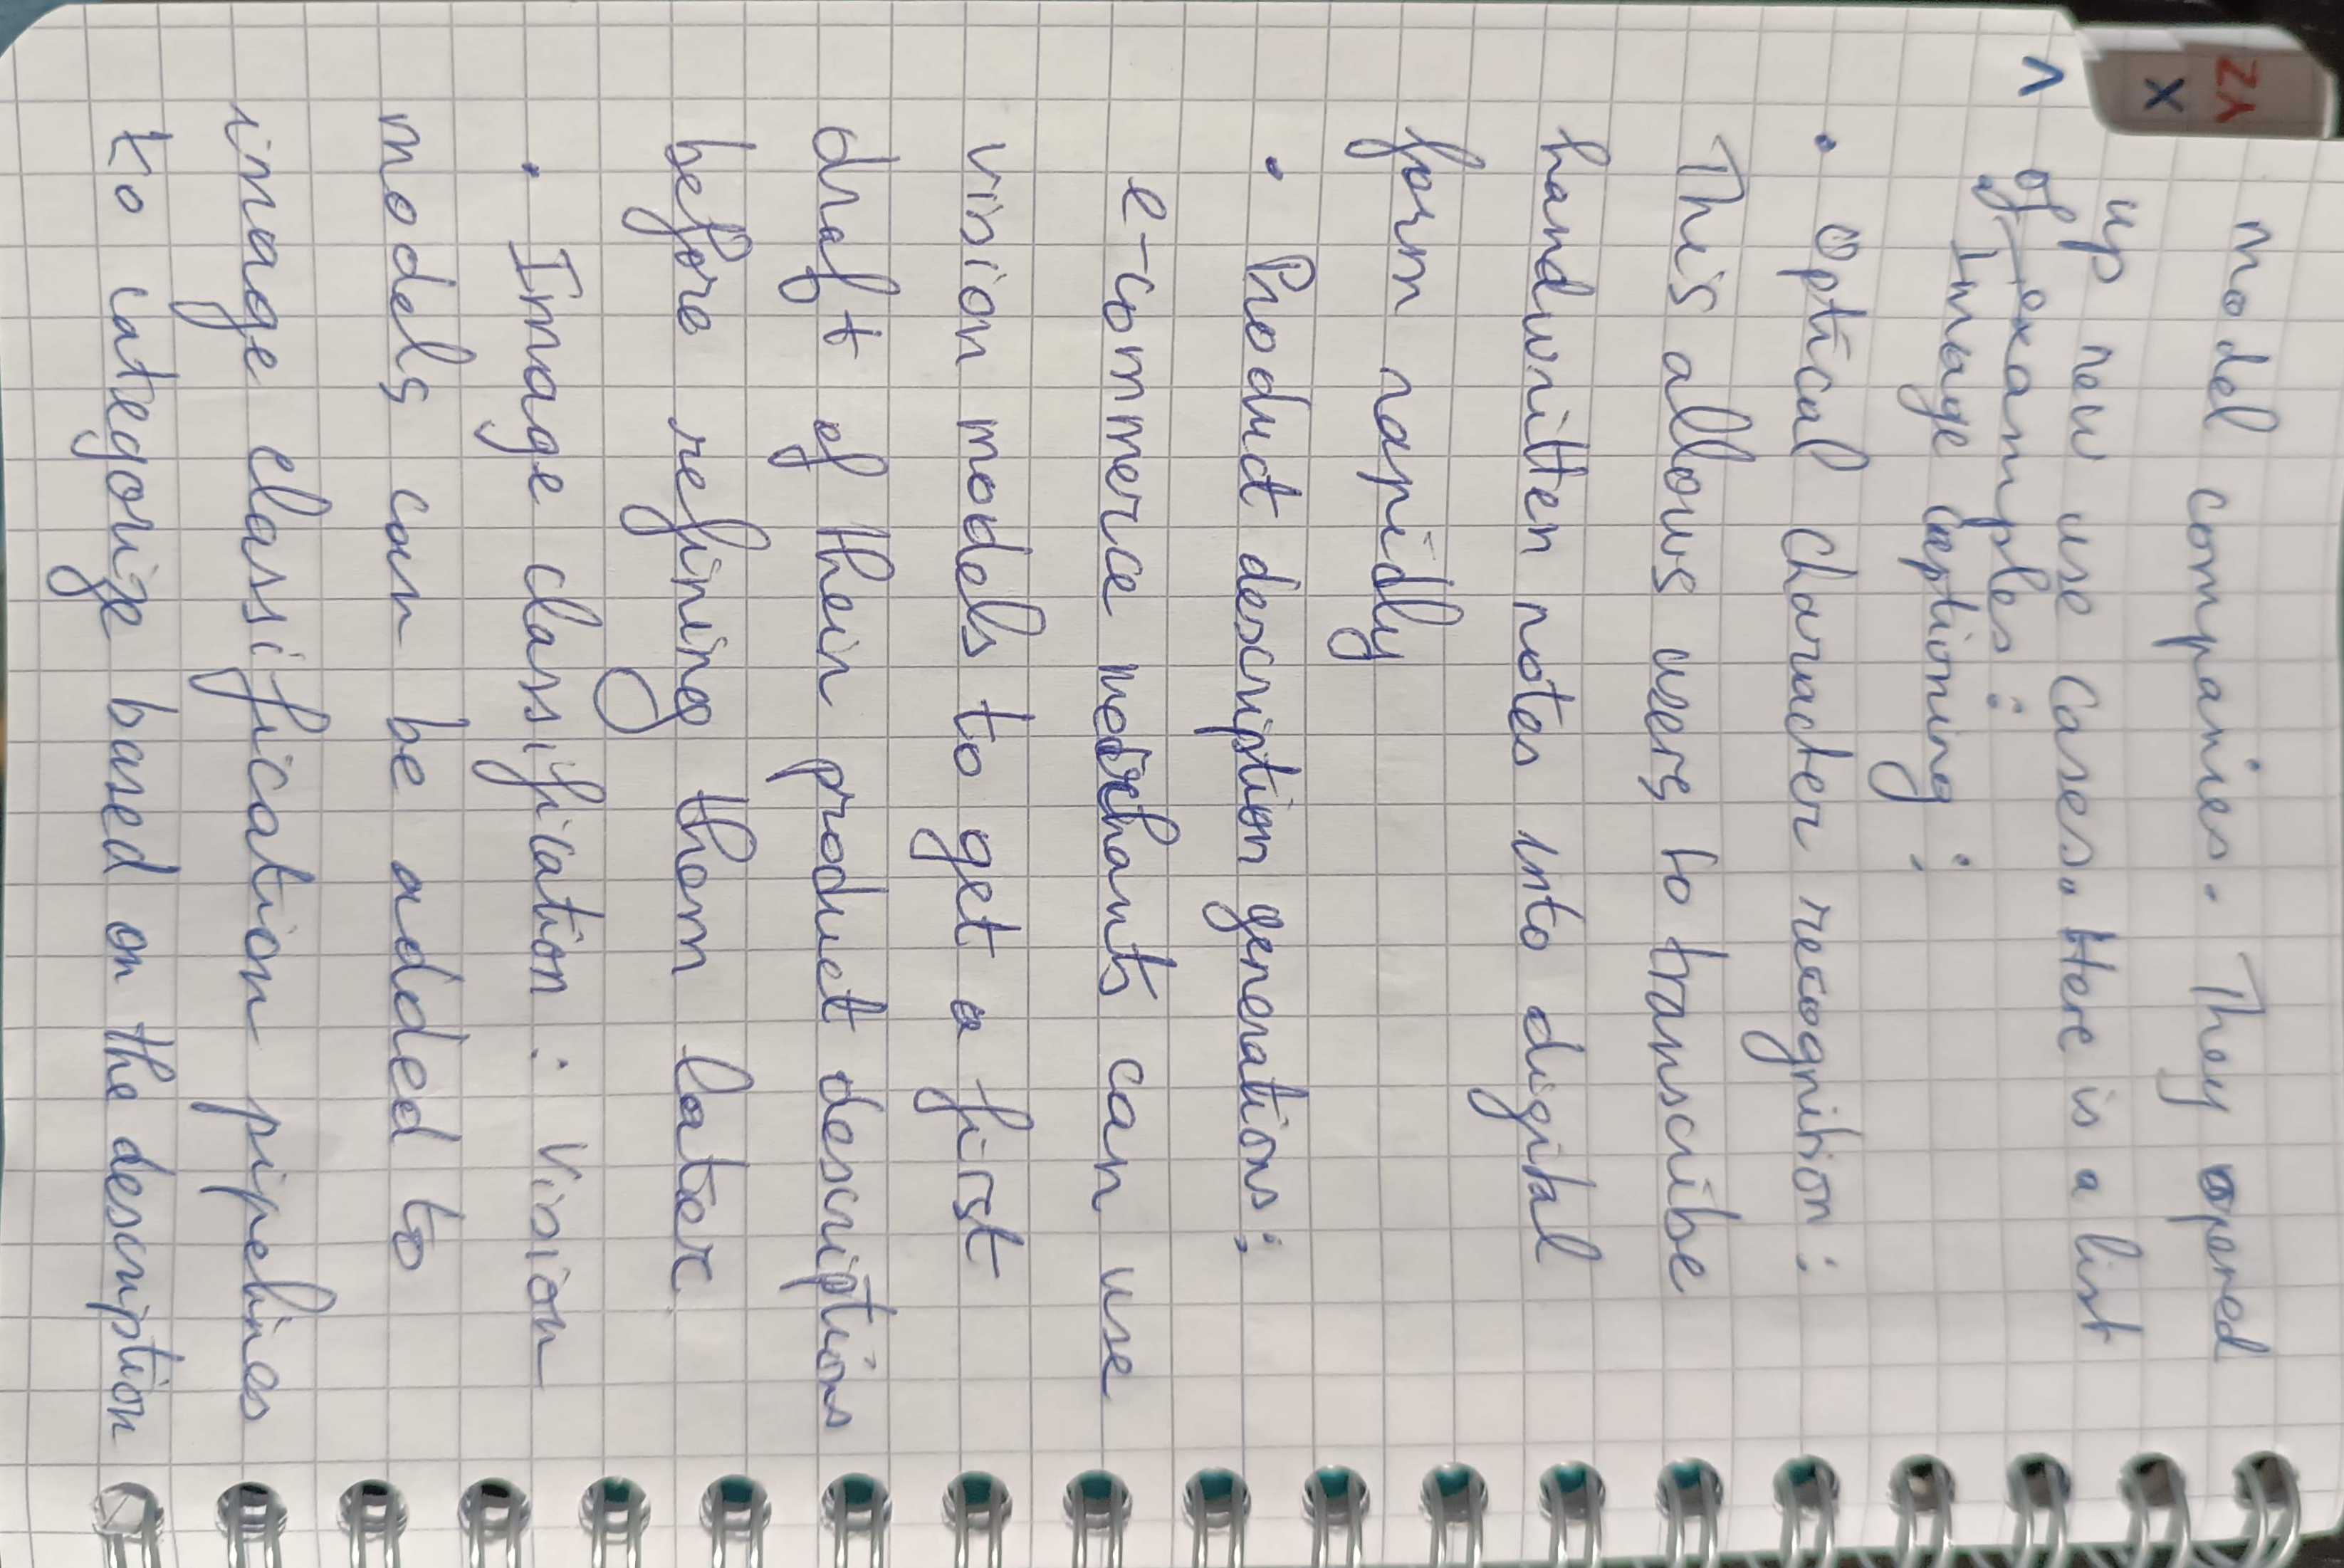 ZY
X
model companies. They opened
up new use cases. Here is a list
of examples :
^ Image captioning ;
• Optical character recognition :
This allows users to transcribe
handwritten notes into digital
form rapidly
• Product description generations ;
e-commerce merchants can use
vision models to get a first
draft of their product descriptions
before refining them later
• Image classification : Vision
models can be added to
image classification pipelines
to categorize based on the description